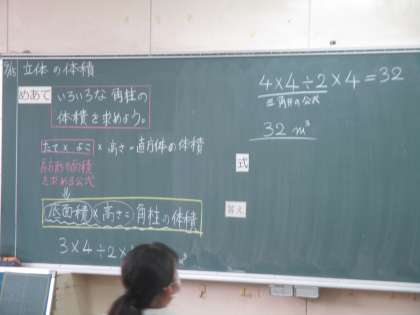 立体の体積
めあて
いろいろな角柱の
体積を求めよう。
たて×よこ×高さ=直方体の体積
長方形の面積
を求める公式
底面積×高さ=角柱の体積
3×4÷2×
4×4÷2×4=32
三角形の公式
32 m³
式
答え